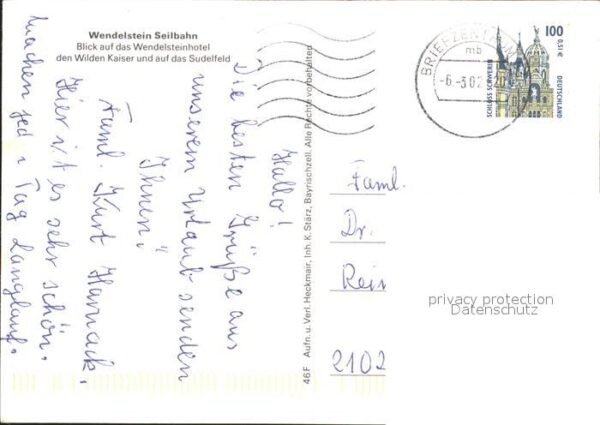 Wendelstein Seilbahn
Blick auf das Wendelsteinhotel
den Wilden Kaiser und auf das Sudelfeld
Hallo!
Die besten Grüße aus
unserem Urlaub senden
Ihnen
Faml. Kurt Harnack.
Hier ist es sehr schön.
machen jed Tag Langlauf.
46F Aufn. u. Verl. Heckmair, Inh. K. Stärz, Bayrischzell. Alle Rechte vorbehalten
BRIEFZENTRUM
mb
-6.-3.02
20
100
0,51 €
SCHLOSS SCHWERIN
DEUTSCHLAND
Faml.
Dr.
Rein
2102
privacy protection
Datenschutz